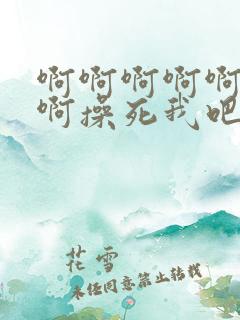 啊啊啊啊啊
啊操死我吧
花雪
未经同意禁止转载